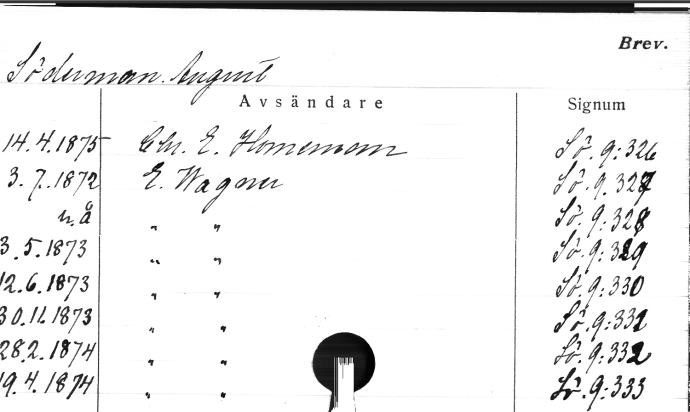 Brev.
Söderman. August
Avsändare Signum
14.4.1875 Chr. E. Hornemann Sö. 9:326
3.7.1872 E. Wagner Sö. 9.327
n.å " " Sö. 9:328
3.5.1873 " " Sö. 9:329
12.6.1873 " " Sö. 9:330
30.11.1873 " " Sö. 9:331
28.2.1874 " " Sö. 9:332
19.4.1874 " " Sö. 9:333